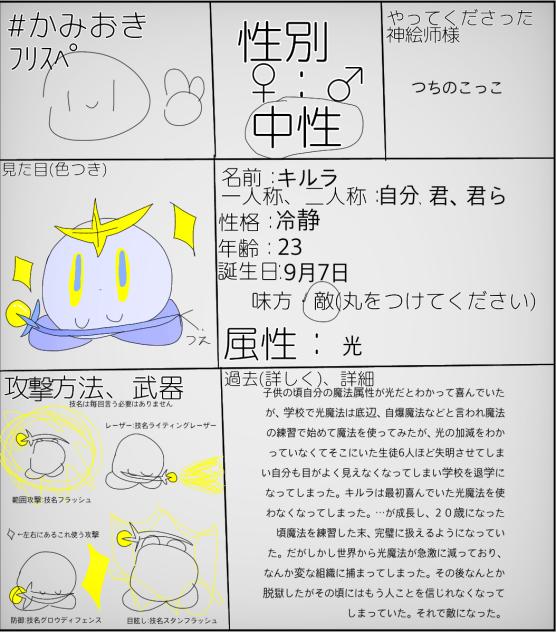 #かみおき
フリスペ
性別
♀:♂
中性
やってくださった
神絵师様
つちのこっこ
見た目(色つき)
名前:キルラ
一人称、二人称:自分、君、君ら
性格:冷静
年齢:23
誕生日:9月7日
味方・敵(丸をつけてください)
属性: 光
攻撃方法、武器
技名は毎回言う必要はありません
レーザー:技名ライティングレーザー
範囲攻撃:技名フラッシュ
←左右にあるこれ使う攻撃
防御:技名グロウディフェンス
目眩し:技名スタンフラッシュ
過去(詳しく)、詳細
子供の頃自分の魔法属性が光だとわかって喜んでいた
が、学校で光魔法は底辺、自爆魔法などと言われ魔法
の練習で始めて魔法を使ってみたが、光の加減をわか
っていなくてそこにいた生徒6人ほど失明させてしま
い自分も目がよく見えなくなってしまい学校を退学に
なってしまった。キルラは最初喜んでいた光魔法を使
わなくなってしまった。…が成長し、２０歳になった
頃魔法を練習した末、完璧に扱えるようになってい
た。だがしかし世界から光魔法が急激に減っており、
なんか変な組織に捕まってしまった。その後なんとか
脱獄したがその頃にはもう人ことを信じれなくなって
しまっていた。それで敵になった。